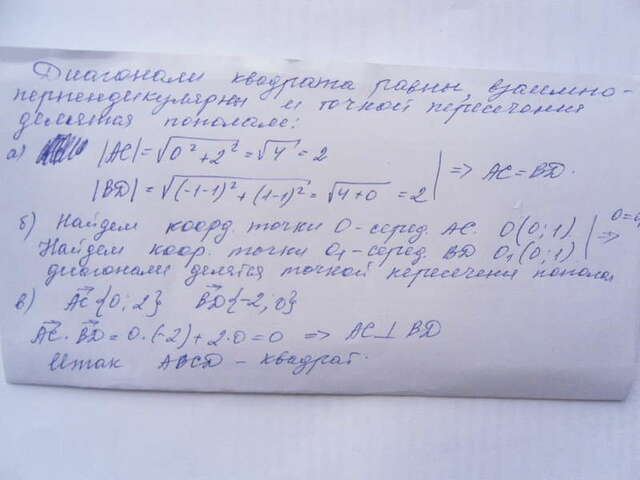 Диагонали квадрата равны, взаимно-
перпендикулярны и точкой пересечения
делятся пополам:
а) |AC| = √0² + 2² = √4 = 2
|BD| = √(-1-1)² + (1-1)² = √4+0 = 2 | ⇒ AC = BD.
б) Найдем коорд. точки O - серед. AC. O(0; 1).
Найдем коор. точки O₁ - серед. BD O₁(0; 1) | ⇒
диагонали делятся точкой пересечени попола
в) AC {0; 2} BD {-2; 0}
AC · BD = 0·(-2) + 2·0 = 0 ⇒ AC ⊥ BD
Итак ABCD - квадрат.